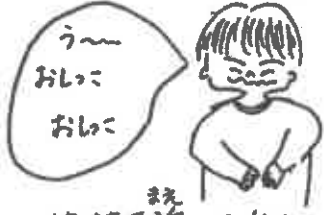 う〜〜
おしっこ
おしっこ
まえ